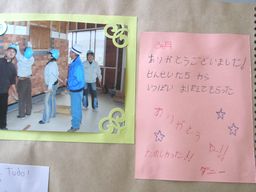 ありがとうございました!
せんせいたち から
いっぱい まなんてもらった
ありがとう
たのしかった!!
ダニー